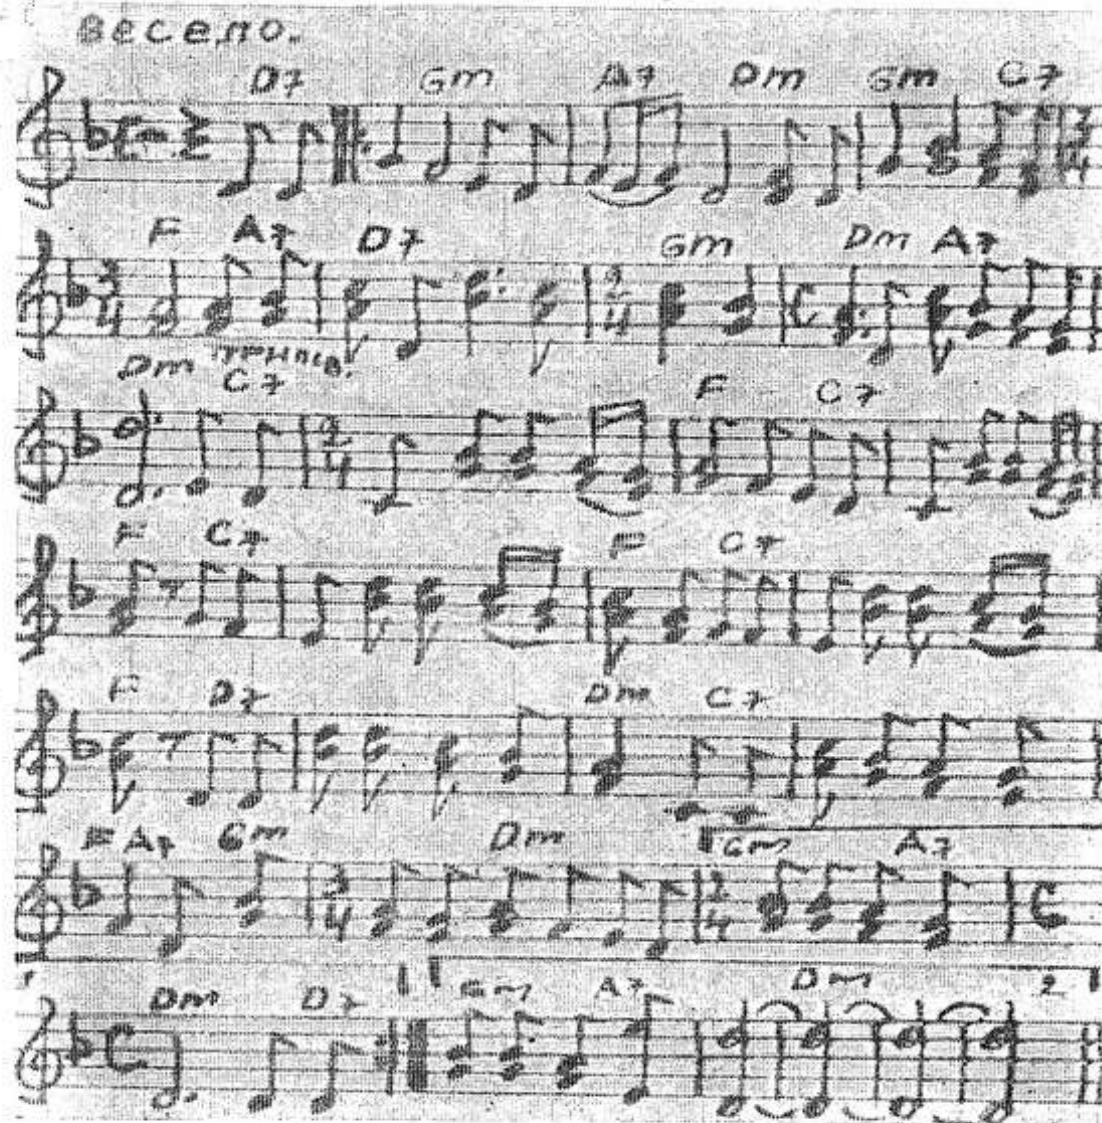 весело.
D7 Gm A7 Dm Gm C7
3/4
3/4
F A7 D7 Gm Dm A7
2/4
Dm припев.
C7 F C7
2/4
F C7 F C7
F D7 Dm C7
F A7 Gm Dm Gm A7
3/4 2/4
Dm D7 1 Gm A7 Dm 2